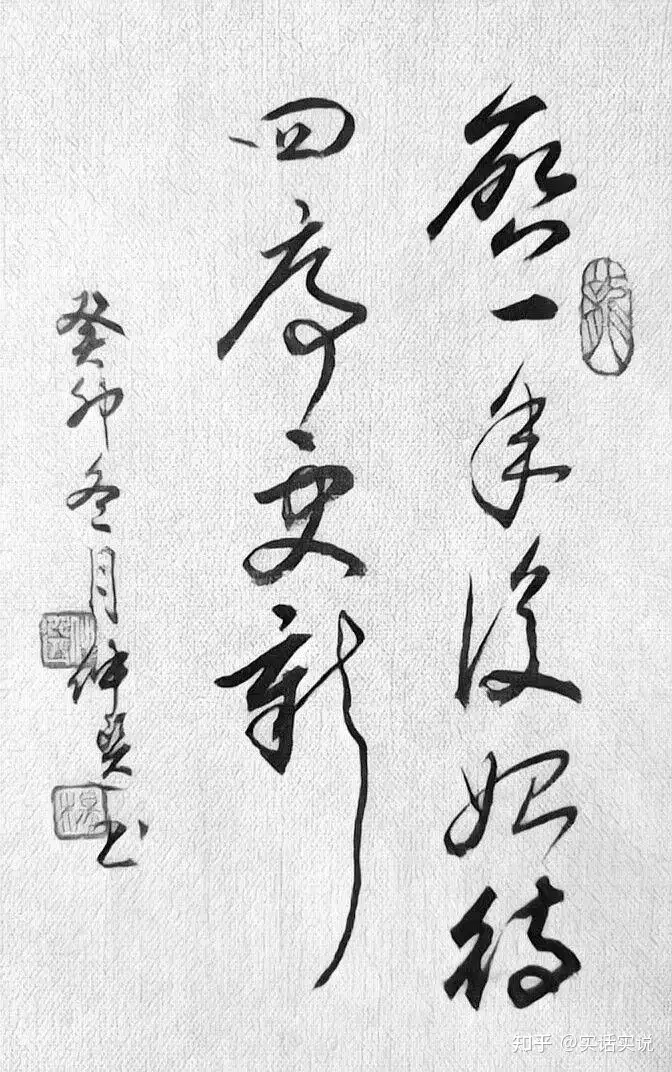 愿一年復始待
四序更新
癸卯冬月仲书
知乎 @实话实说